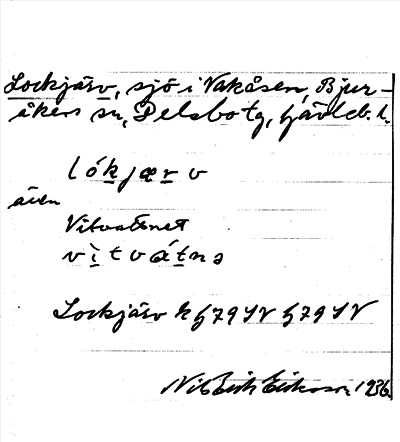 Lockjärv, sjö i Vakåsen, Bjur-
åkers sn, Delsbo tg, Gävleb. l.
lókjærv
även
Vitvattnet
vìtvátns
Lockjärv k G79SV G79SV
Nils Erik Eriksson 1936